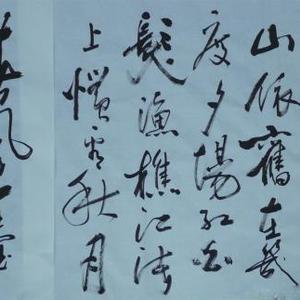 山依舊在幾
度夕陽紅白
髮漁樵江渚
上慣看秋月